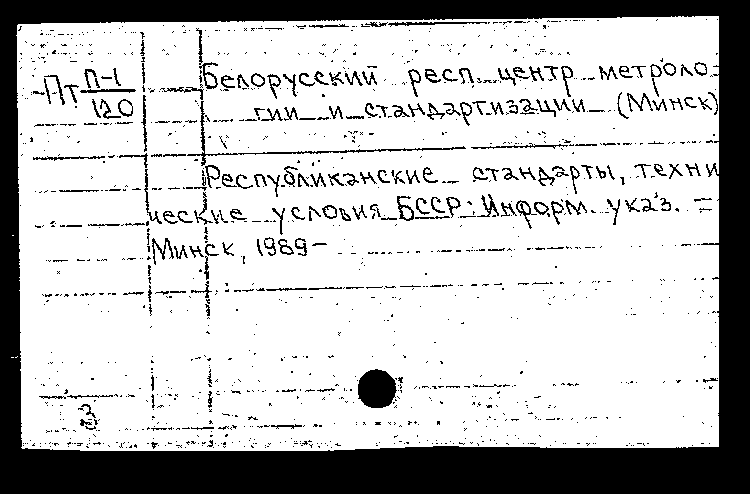 Пт П-1
120
Белорусский респ. центр метроло=
гии и стандартизации (Минск)
Республиканские стандарты, техни
ческие условия БССР: Информ. указ. =
Минск, 1989-
3